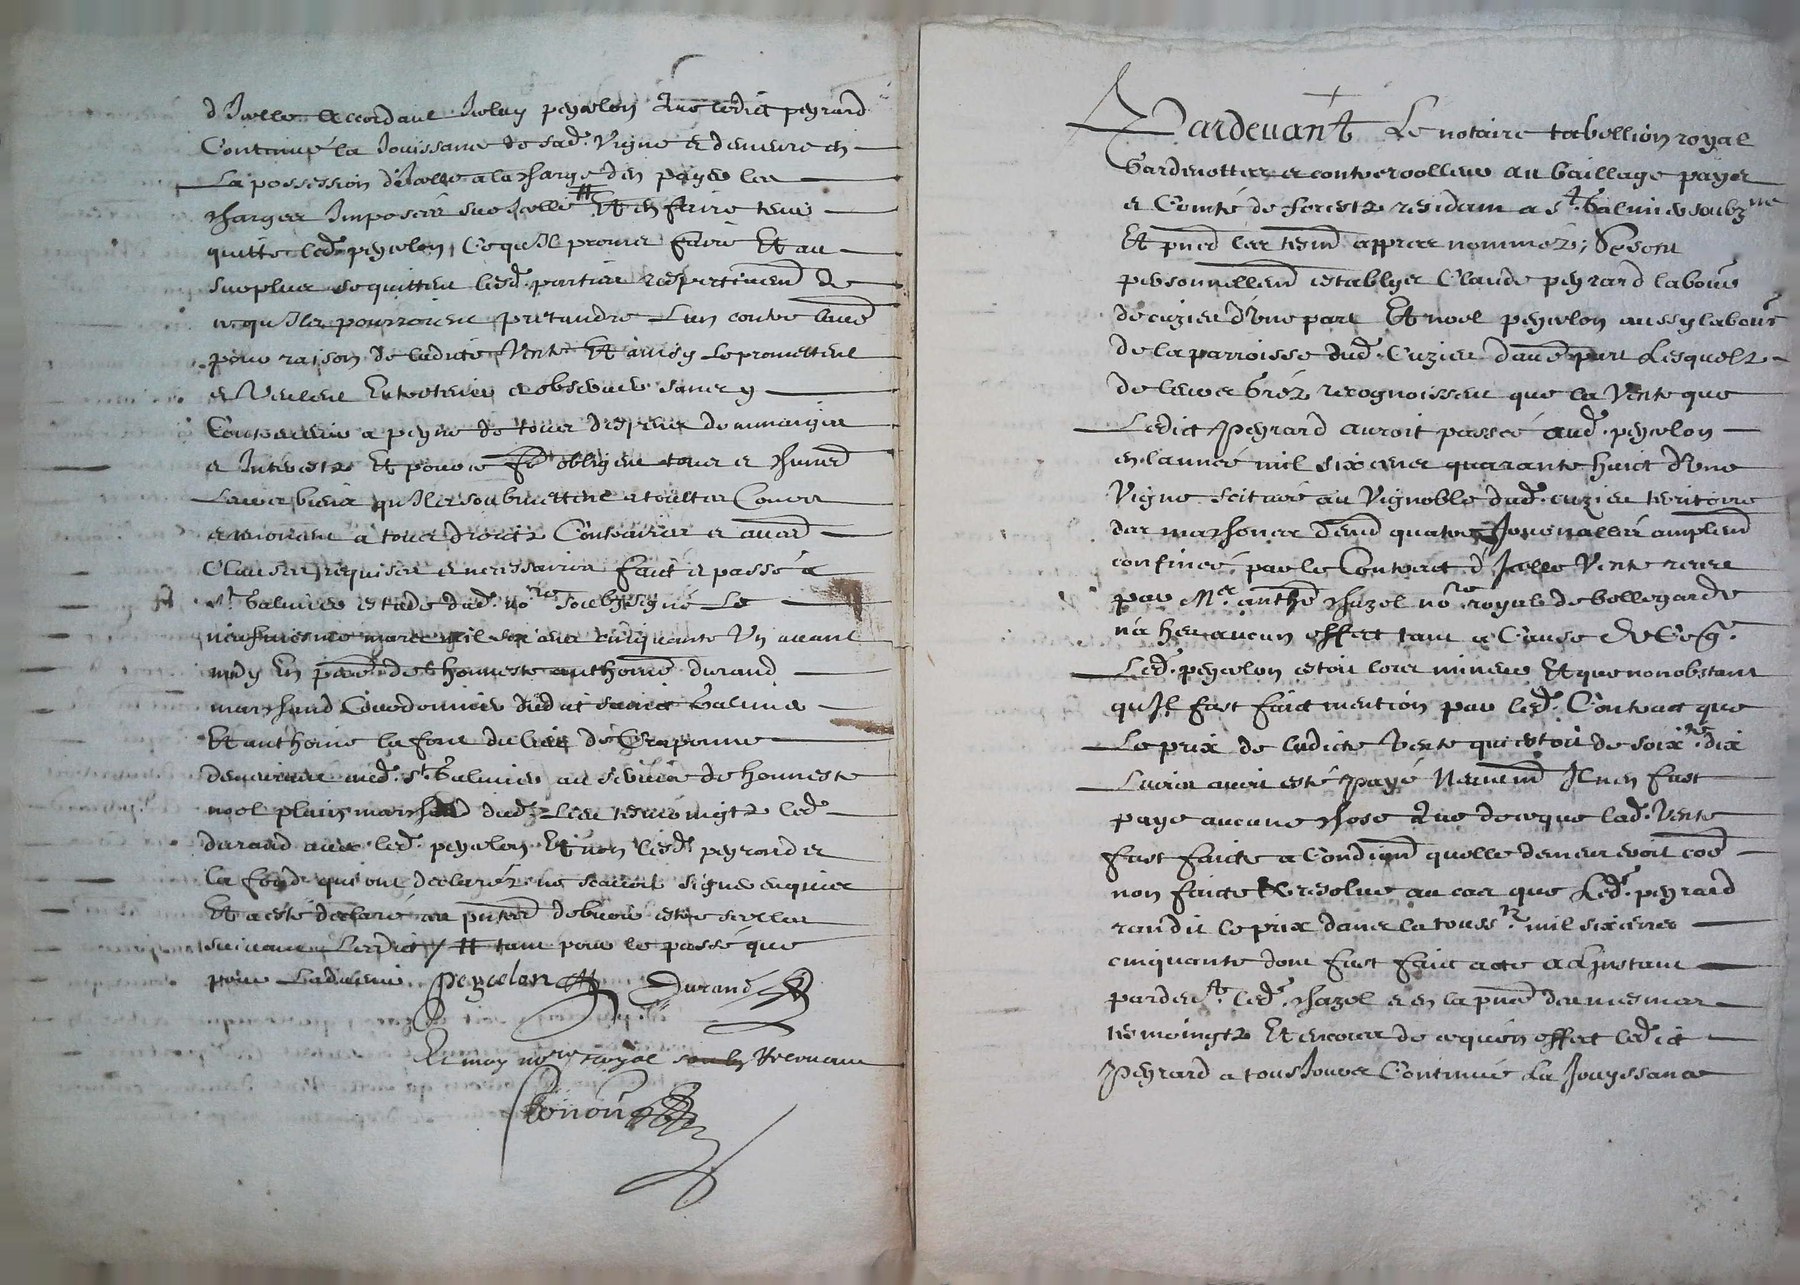 d'Icelle accordant Icelluy peyrelon Que ledict peyrard
Continue la Jouissance de sad. Vigne et demeure en
La possession d'icelle a la charge d'en payer les
charges Imposées sur Icelle # Et en faire tenir
quitte led. peyrelon, Ce qu'Il promet faire Et au
surplus se quittent lesd. parties respectivem de
ce qu'Ilz pourroient pretandre L'un contre l'aue
pour raison de ladicte Vente Et ainsy Le promettent
et Veulent Entretenir et observer sans y
Contrevenir a peyne de tous despens dommaiges
et Interestz Et pour ce obligent tous et chuns
Leurs biens qu'Ilz soubmettent a toultes Cours
et renoncent a tous droictz Contraires et avecq
Clauses requises et necessaires faict et passé a
st galmier estude dud. no.re soubzsigné Le
neufviesme mars mil six cens cinquante Un avant
midy En pnce de honneste anthoine durand
marchand Cordonnier dudict sainct Galmier
Et anthoine la font du lieu de Craponne
demeurant aud. st Galmier au service de honneste
noel plain marchand dud. Lieu tesmoingtz led.
durand avec led. peyrelon Et non lesd. peyrard et
la font qui ont declaréz ne scavoir signer enquis
Et a esté declaré au pnt debvoir estre scellar
suivant L'edict / # tant pour le passé que
pour Ladvenir. Peyrelon Durand
Et moy no.re royal soubz Recevant
Ponon
Pardevant Le notaire tabellion royal
Gardenottes et controolleur au bailliage pays
et Comté de forestz residam a st. Galmier soubz.né
Et pnce les tesm appres nommez; Se sont
personnellem establys Claude peyrard labour
de cuzieu d'Une part Et noel peyrelon aussy labour
de la parroisse dud. Cuzieu d'aue part Lesquelz
de leurs gréz recognoissent que la Vente que
Ledict Peyrard auroit passé aud. peyrelon
en l'année mil six cens quarante huict d'Une
Vigne scituée au Vignoble dud. cuzieu teritoire
des mazonca d'env quatre Journallées amplem
confinée, par le Contract d'Icelle Vente receu
par Mr. anthe chazel no.re royal de bellegarde
n'a heu aucun effect tant a Cause de Ce q.
Led. peyrelon estoit lors mineur Et que nonobstant
qu'Il fust faict mention par led. Contract que
Le prix de ladicte Vente qui estoit de soix.te dix
Livres avoit esté payé Neanm Il n'en fust
payé aucune chose Que de ce que lad. Vente
fust faicte a Condi'on qu'elle demeureroit coe
non faicte Et resolue au cas que Led. peyrard
randit le prix dans la touss. mil six cens
cinquante dont fust faict acte a d'Instant
pardev.t led. chazel et en la pnce des mesmes
tesmoingtz Et encores de ce qu'en effect ledict
Peyrard a tousJours Continué La Jouyssance